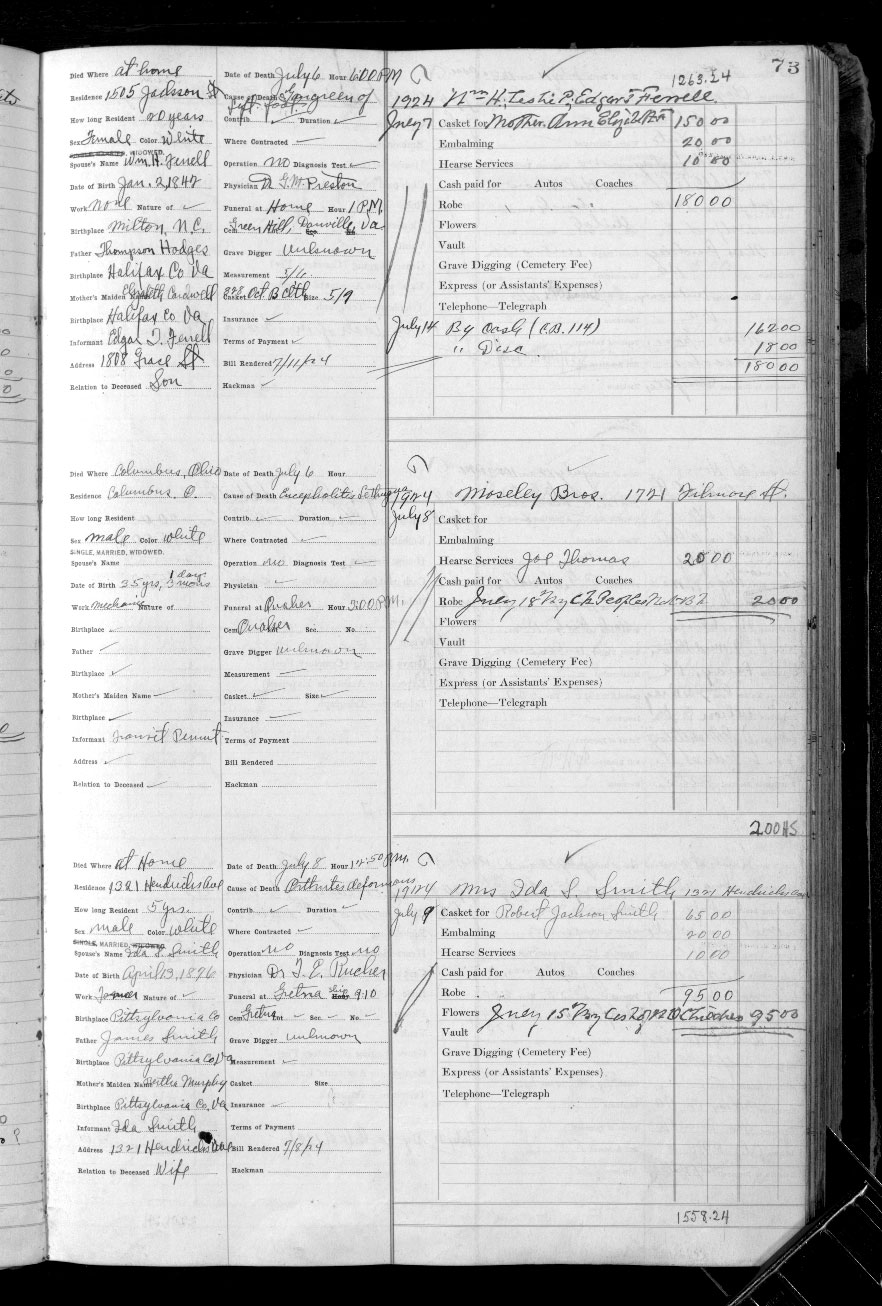 73
1263.24
Died Where at home Date of Death July 6 Hour 6:00 PM
Residence 1505 Jackson St Cause of Death Gangreen of
left foot
How long Resident 20 years Contrib. ✓ Duration ✓
Sex Female Color White Where Contracted ✓
SINGLE, MARRIED, WIDOWED.
Spouse's Name Wm. H. Ferrell Operation no Diagnosis Test ✓
Date of Birth Jan. 2, 1842 Physician Dr G. W. Preston
Work none Nature of ✓ Funeral at Home Hour 1 P.M.
Birthplace Milton, N.C. Cem Green Hill, Danville, Va
Father Thompson Hodges Grave Digger unknown
Birthplace Halifax Co Va Measurement 5/6
Mother's Maiden Name Elizabeth Cardwell Casket Oct. B Clth Size 5/9
Birthplace Halifax Co Va Insurance ✓
Informant Edgar T. Ferrell Terms of Payment ✓
Address 1808 Grace St Bill Rendered 7/11/24
Relation to Deceased Son Hackman ✓
1924 Wm H, Leslie P, Edgar T Ferrell
July 7 Casket for Mother Ann Elizabeth 150 00
Embalming 20 00
Hearse Services 10 00
Cash paid for Autos Coaches
Robe 180 00
Flowers
Vault
Grave Digging (Cemetery Fee)
Express (or Assistants' Expenses)
Telephone—Telegraph
July 14 By Cash (C.B. 114) 162 00
" Disc 18 00
180 00
Died Where Columbus, Ohio Date of Death July 6 Hour
Residence Columbus. O. Cause of Death Encephalitis Lethargya
How long Resident Contrib ✓ Duration ✓
Sex male Color white Where Contracted ✓
SINGLE, MARRIED, WIDOWED.
Spouse's Name Operation no Diagnosis Test ✓
Date of Birth 25 yrs, 3 mons 1 day Physician ✓
Work mechanic Nature of Funeral at Quaker Hour 3:00 P.M.
Birthplace ✓ Cem Quaker Lot Sec. No.
Father ✓ Grave Digger unknown
Birthplace ✓ Measurement ✓
Mother's Maiden Name ✓ Casket ✓ Size ✓
Birthplace ✓ Insurance ✓
Informant Transit Permit Terms of Payment
Address ✓ Bill Rendered
Relation to Deceased ✓ Hackman
1924 Moseley Bros. 1721 Filmore St.
July 8 Casket for
Embalming
Hearse Services Joe Thomas 20 00
Cash paid for Autos Coaches
Robe July 18 By Ck Peoples 20 00
Flowers
Vault
Grave Digging (Cemetery Fee)
Express (or Assistants' Expenses)
Telephone—Telegraph
200 HS
Died Where at Home Date of Death July 8 Hour 12:50 P.M.
Residence 1321 Hendricks Ave Cause of Death Arthrites deformans
How long Resident 5 yrs. Contrib ✓ Duration ✓
Sex male Color white Where Contracted ✓
SINGLE, MARRIED, WIDOWED.
Spouse's Name Ida S. Smith Operation no Diagnosis Test no
Date of Birth April 13, 1876 Physician Dr T. E. Rucker
Work Farmer Nature of ✓ Funeral at Gretna Hour 910
Birthplace Pittsylvania Co Cem Gretna Lot ✓ Sec ✓ No. ✓
Father James Smith Grave Digger unknown
Birthplace Pittsylvania Co, Va Measurement ✓
Mother's Maiden Name Bertha Murphy Casket Size
Birthplace Pittsylvania Co. Va Insurance ✓
Informant Ida Smith Terms of Payment
Address 1321 Hendricks Ave Bill Rendered 7/8/24
Relation to Deceased Wife Hackman
1924 Mrs Ida S. Smith 1321 Hendricks Ave
July 9 Casket for Robert Jackson Smith 65 00
Embalming 20 00
Hearse Services 10 00
Cash paid for Autos Coaches
Robe 95 00
Flowers July 15 By 95 00
Vault
Grave Digging (Cemetery Fee)
Express (or Assistants' Expenses)
Telephone—Telegraph
1558.24